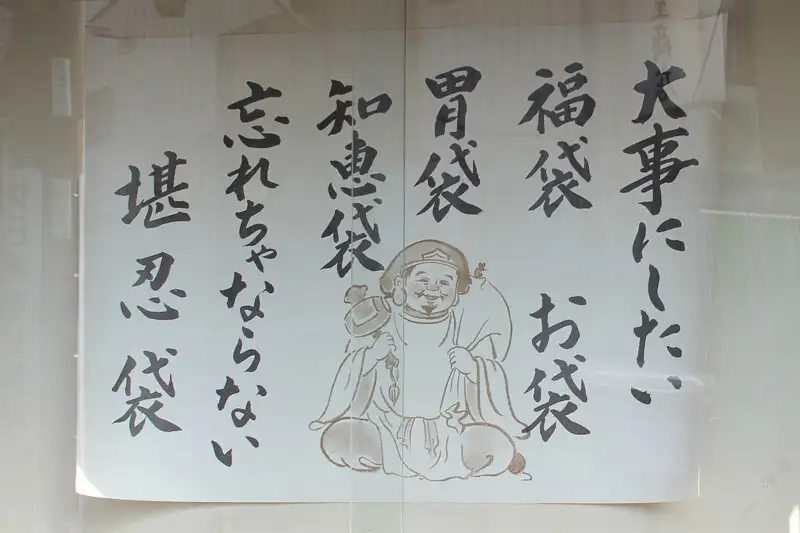 大事にしたい
福袋　お袋
胃袋
知恵袋
忘れちゃならない
堪忍袋